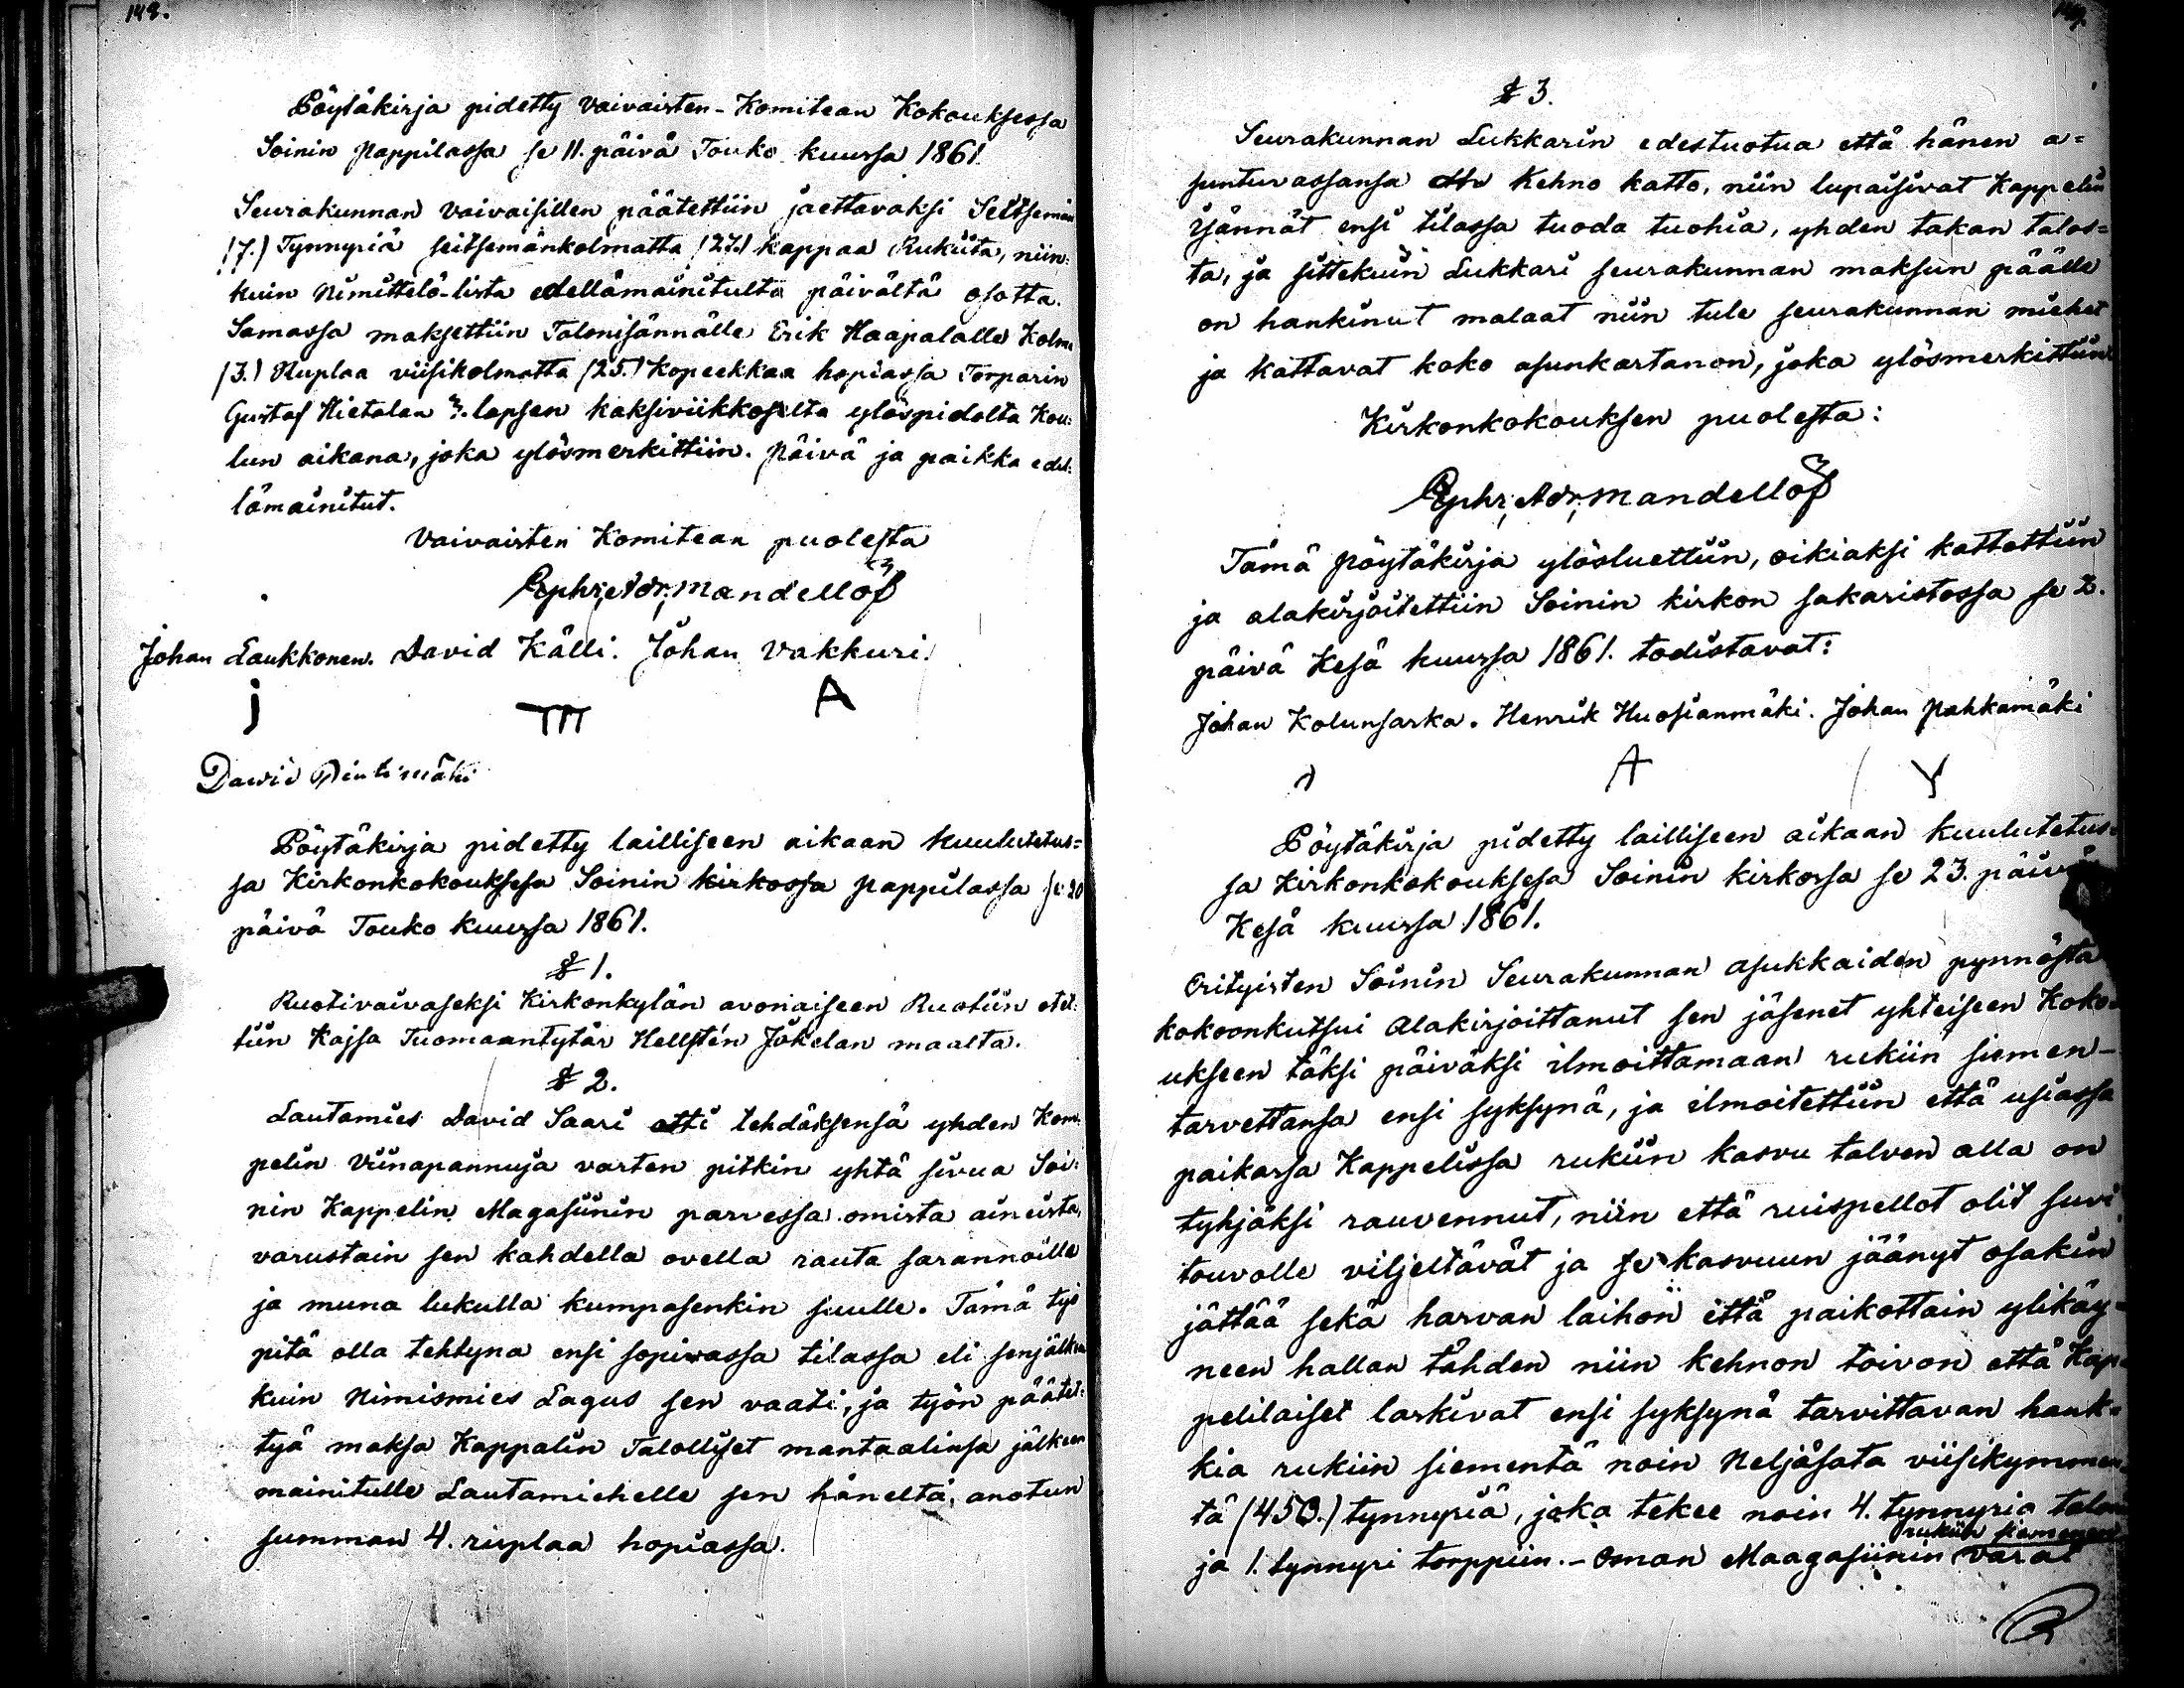 148.
Pöytäkirja pidetty Vaivaisten-Komitean Kokouksessa
Soinin Pappilassa se 11. päivä Touko kuussa 1861.
Seurakunnan Vaivaisillen päätettiin jaettavaksi Seitsemän
(7.) Tynnyriä seitsemänkolmatta (27.) kappaa Rukiita, niin-
kuin Nimittelö-lista edellämainitulta päivältä osotta.
Samassa maksettiin Talonisännälle Erik Haapalalle Kolme
(3.) Ruplaa viisikolmatta (25.) Kopeekkaa hopiassa Torparin
Gustaf Hietalan 3. lapsen kaksiviikkoselta ylöspidolta Kou-
lun aikana, joka ylösmerkittiin. Päivä ja paikka edel-
lämainitut.
Vaivaisten Komitean puolesta
Ephr. Adr. Mandellöf
Johan Laukkonen. David Källi. Johan Vakkuri.
J A
David Pintimäki
Pöytäkirja pidetty lailliseen aikaan kuulutetus=
sa Kirkonkokouksesa Soinin kirkossa pappilassa se 20
päivä Touko kuussa 1861.
§ 1.
Ruotivaivaseksi Kirkonkylän avonaiseen Ruotiin otet-
tiin Kajsa Tuomaantytär Hellstén Jokelan maalta.
§ 2.
Lautamies David Saari otti tehdäksensä yhden Kom-
pelin Viinapannuja varten pitkin yhtä sivua Soi-
nin Kappelin Magasiinin parvessa omista aineista,
varustain sen kahdella ovella rauta sarannoilla
ja muna lukulla kumpasenkin suulle. Tämä työ
pitä olla tehtynä ensi sopivassa tilassa eli senjälken
kuin Nimismies Lagus sen vaati, ja työn päätet-
tyä maksa Kappalin Talolliset mantaalinsa jälkeen
mainitulle Lautamiehelle sen häneltä anotun
summan 4. ruplaa hopiassa.
149.
§ 3.
Seurakunnan Lukkarin edestuotua että hänen a=
suntuvassansa on Kehno katto, niin lupaisivat Kappelin
Isännät ensi tilassa tuoda tuohia, yhden takan talos=
ta, ja sittekuin Lukkari seurakunnan maksun päälle
on hankinut malaat niin tule seurakunnan miehet
ja kattavat koko asunkartanon, joka ylösmerkittiin
Kirkonkokouksen puolesta:
Ephr. Adr. Mandellöf
Tämä pöytäkirja ylösluettiin, oikiaksi katsottiin
ja alakirjoitettiin Soinin kirkon sakaristossa se 2.
päivä Kesä kuussa 1861. todistavat:
Johan Kolunsarka. Henrik Huosianmäki. Johan Pahkamäki
A Y
Pöytäkirja pidetty lailliseen aikaan kuulutetus=
sa Kirkonkokouksesa Soinin kirkossa se 23. päivä
Kesä kuussa 1861.
Erityisten Soinin Seurakunnan asukkaiden pynnöstä
kokoonkutsui Alakirjoittanut sen jäsenet yhteiseen Koko=
ukseen täksi päiväksi ilmoittamaan rukiin siemen-
tarvettansa ensi syksynä, ja ilmoitettiin että usiassa
paikassa Kappelissa rukiin kasvu talven alla on
tyhjäksi rauvennut, niin että ruispellot olit suvi
touvolle viljeltävät ja se kasvuun jäänyt osakin
jättää sekä harvan laihon että paikottain ylikäy=
neen hallan tähden niin kehnon toivon että Kap=
pelilaiset laskivat ensi syksynä tarvittavan hank=
kia rukiin siementä noin Neljäsata viisikymmen=
tä (450.) tynnyriä, joka tekee noin 4. tynnyria talon
ja 1. tynnyri torppiin. - Oman Maagasiinin rukiin siemenen
varat